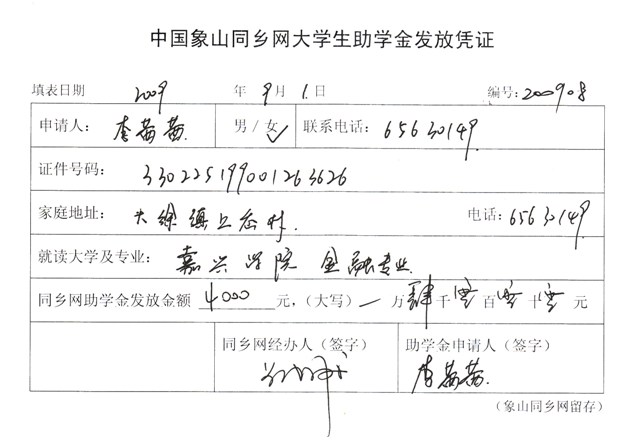 中国象山同乡网大学生助学金发放凭证
填表日期 2009 年 9 月 1 日 编号：200908
申请人： 李茜茜 男 / 女 ✓ 联系电话： 65630149
证件号码： 330225199001263626
家庭地址： 大徐镇上岙村 电话：65630149
就读大学及专业： 嘉兴学院 金融专业
同乡网助学金发放金额 4000 元，（大写） 一 万 肆 千 零 百 零 十 零 元
同乡网经办人（签字） 助学金申请人（签字）
李茜茜
（象山同乡网留存）